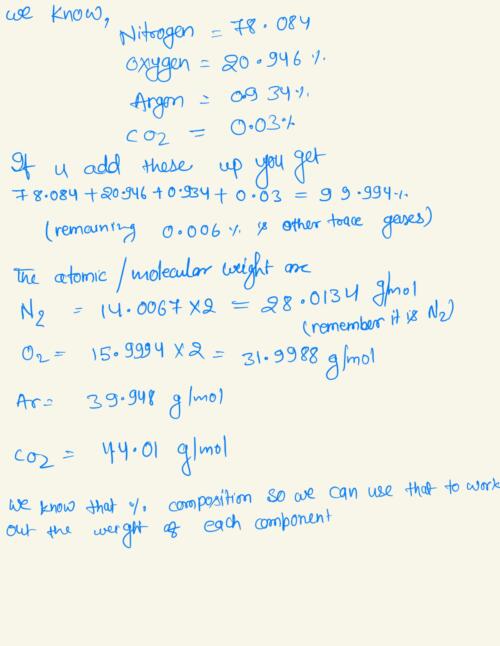 we know,
Nitrogen = 78.084
Oxygen = 20.946 %
Argon = 0.934%
CO2 = 0.03%
If u add these up you get
78.084 + 20.946 + 0.934 + 0.03 = 99.994%
(remaining 0.006% is other trace gases)
The atomic/molecular weight are
N2 = 14.0067 X 2 = 28.0134 g/mol
(remember it is N2)
O2 = 15.9994 X 2 = 31.9988 g/mol
Ar = 39.948 g/mol
CO2 = 44.01 g/mol
we know that % composition so we can use that to work
out the weight of each component